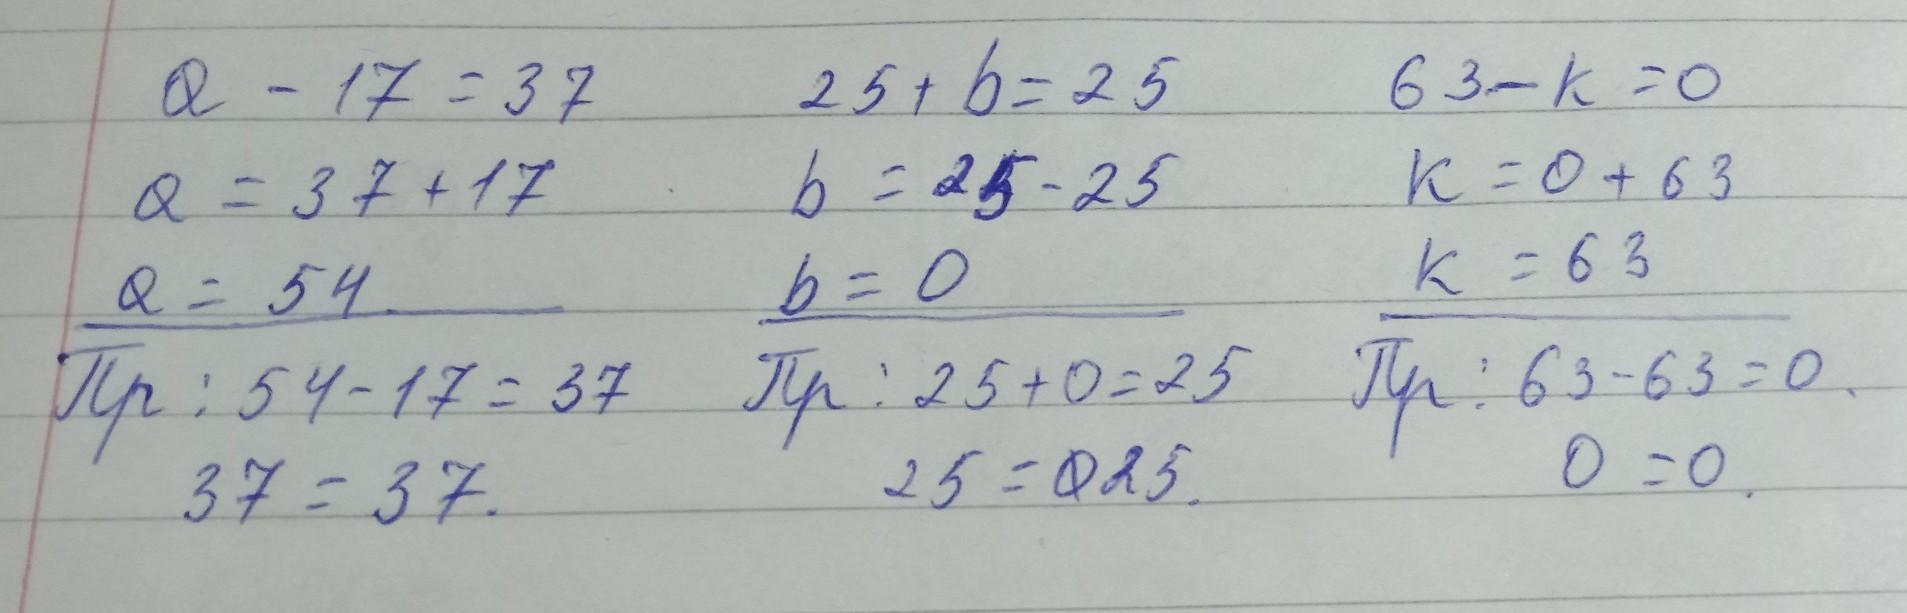 a - 17 = 37 25 + b = 25 63 - k = 0
a = 37 + 17 b = 25 - 25 k = 0 + 63
a = 54 b = 0 k = 63
Пр: 54 - 17 = 37 Пр: 25 + 0 = 25 Пр: 63 - 63 = 0.
37 = 37. 25 = 025. 0 = 0.